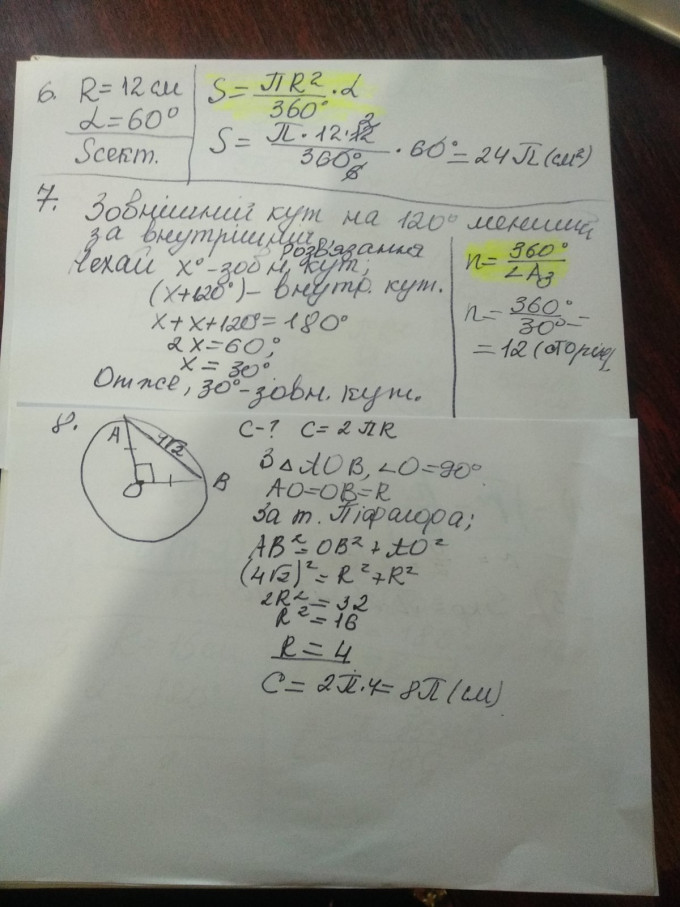 6. R = 12 см
α = 60°
Sсект.
S = ПR²/360° · α
S = П · 12 · 12/360° · 60° = 24П (см²)
2
6
7. Зовнішний кут на 120° менший
за внутрішний
Розв'язання
Нехай x° - зовн. кут;
(x+120°) - внутр. кут.
x + x + 120° = 180°
2x = 60°;
x = 30°
Отже, 30° - зовн. кут.
n = 360°/∠Aз
n = 360°/30° =
= 12 (сторін)
8.
A
4√2
B
O
C - ? C = 2ПR
З △AOB, ∠O = 90°
AO = OB = R
За т. Піфагора;
AB² = OB² + AO²
(4√2)² = R² + R²
2R² = 32
R² = 16
R = 4
C = 2П·4 = 8П (см)